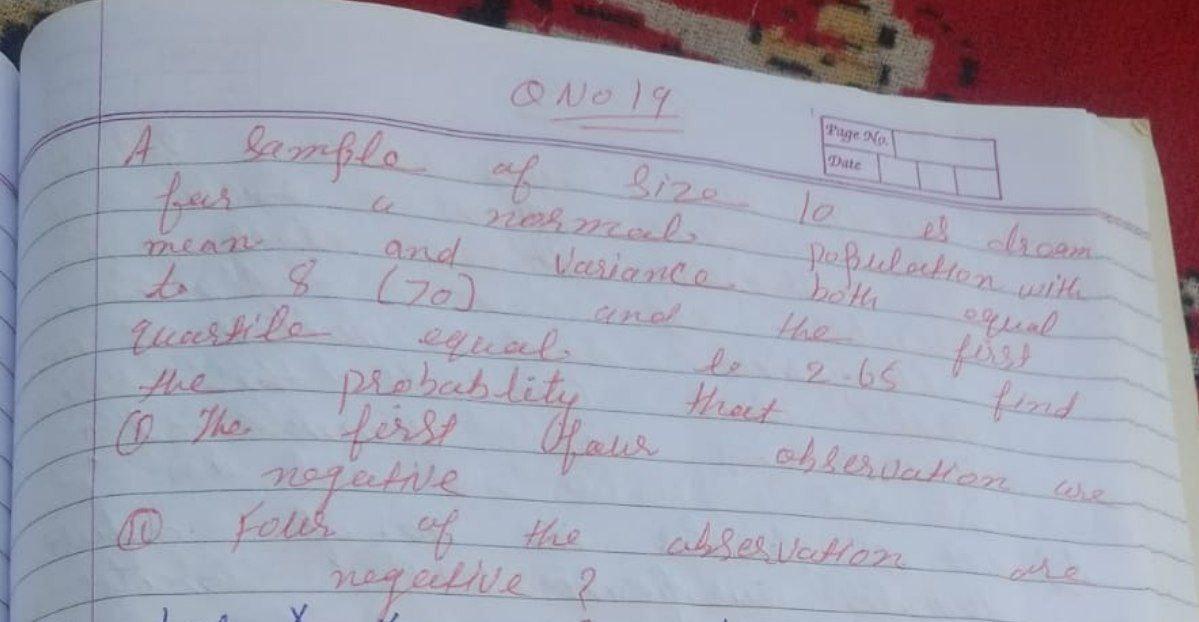 Q No 19
Page No.
Date
A sample of size 10 is drawn
for a normal population with
mean and variance both equal
to 8 (70) and the first
quartile equal to 2.65 find
the probablity that
(I) The first four observation are
negative
(II) Four of the observation are
negative ?